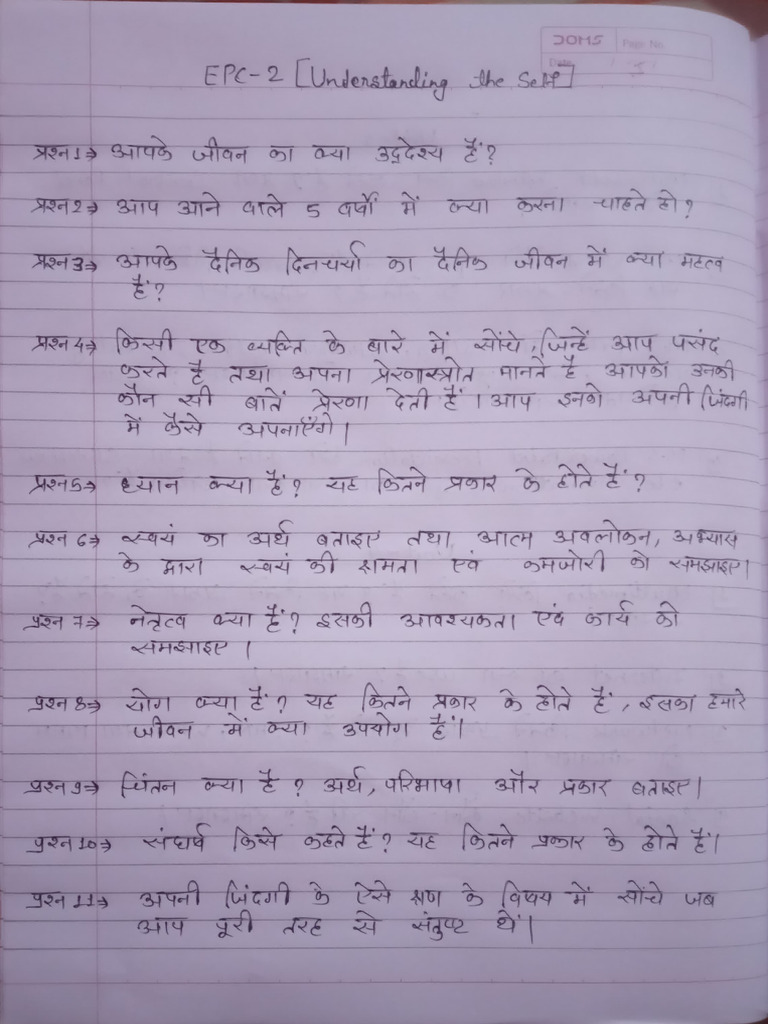 DOMS
Page No.
Date
EPC-2 [Understanding the Self]
प्रश्न 1⇒ आपके जीवन का क्या उद्देश्य हैं?
प्रश्न 2⇒ आप आने वाले 5 वर्षों में क्या करना चाहते हो?
प्रश्न 3⇒ आपके दैनिक दिनचर्या का दैनिक जीवन में क्या महत्व
हैं?
प्रश्न 4⇒ किसी एक व्यक्ति के बारे में सोंचे, जिन्हें आप पसंद
करते है तथा अपना प्रेरणास्त्रोत मानते है आपको उनकी
कौन सी बातें प्रेरणा देती हैं। आप इनको अपनी जिंदगी
में कैसे अपनाएँगे।
प्रश्न 5⇒ ध्यान क्या हैं? यह कितने प्रकार के होते हैं?
प्रश्न 6⇒ स्वयं का अर्थ बताइए तथा आत्म अवलोकन, अभ्यास
के द्वारा स्वयं की क्षमता एवं कमजोरी को समझाइए।
प्रश्न 7⇒ नेतृत्व क्या हैं? इसकी आवश्यकता एवं कार्य को
समझाइए।
प्रश्न 8⇒ योग क्या हैं? यह कितने प्रकार के होते हैं, इसका हमारे
जीवन में क्या उपयोग हैं।
प्रश्न 9⇒ चिंतन क्या है? अर्थ, परिभाषा और प्रकार बताइए।
प्रश्न 10⇒ संघर्ष किसे कहते हैं? यह कितने प्रकार के होते हैं।
प्रश्न 11⇒ अपनी जिंदगी के ऐसे क्षण के विषय में सोंचे जब
आप पूरी तरह से संतुष्ट थें।